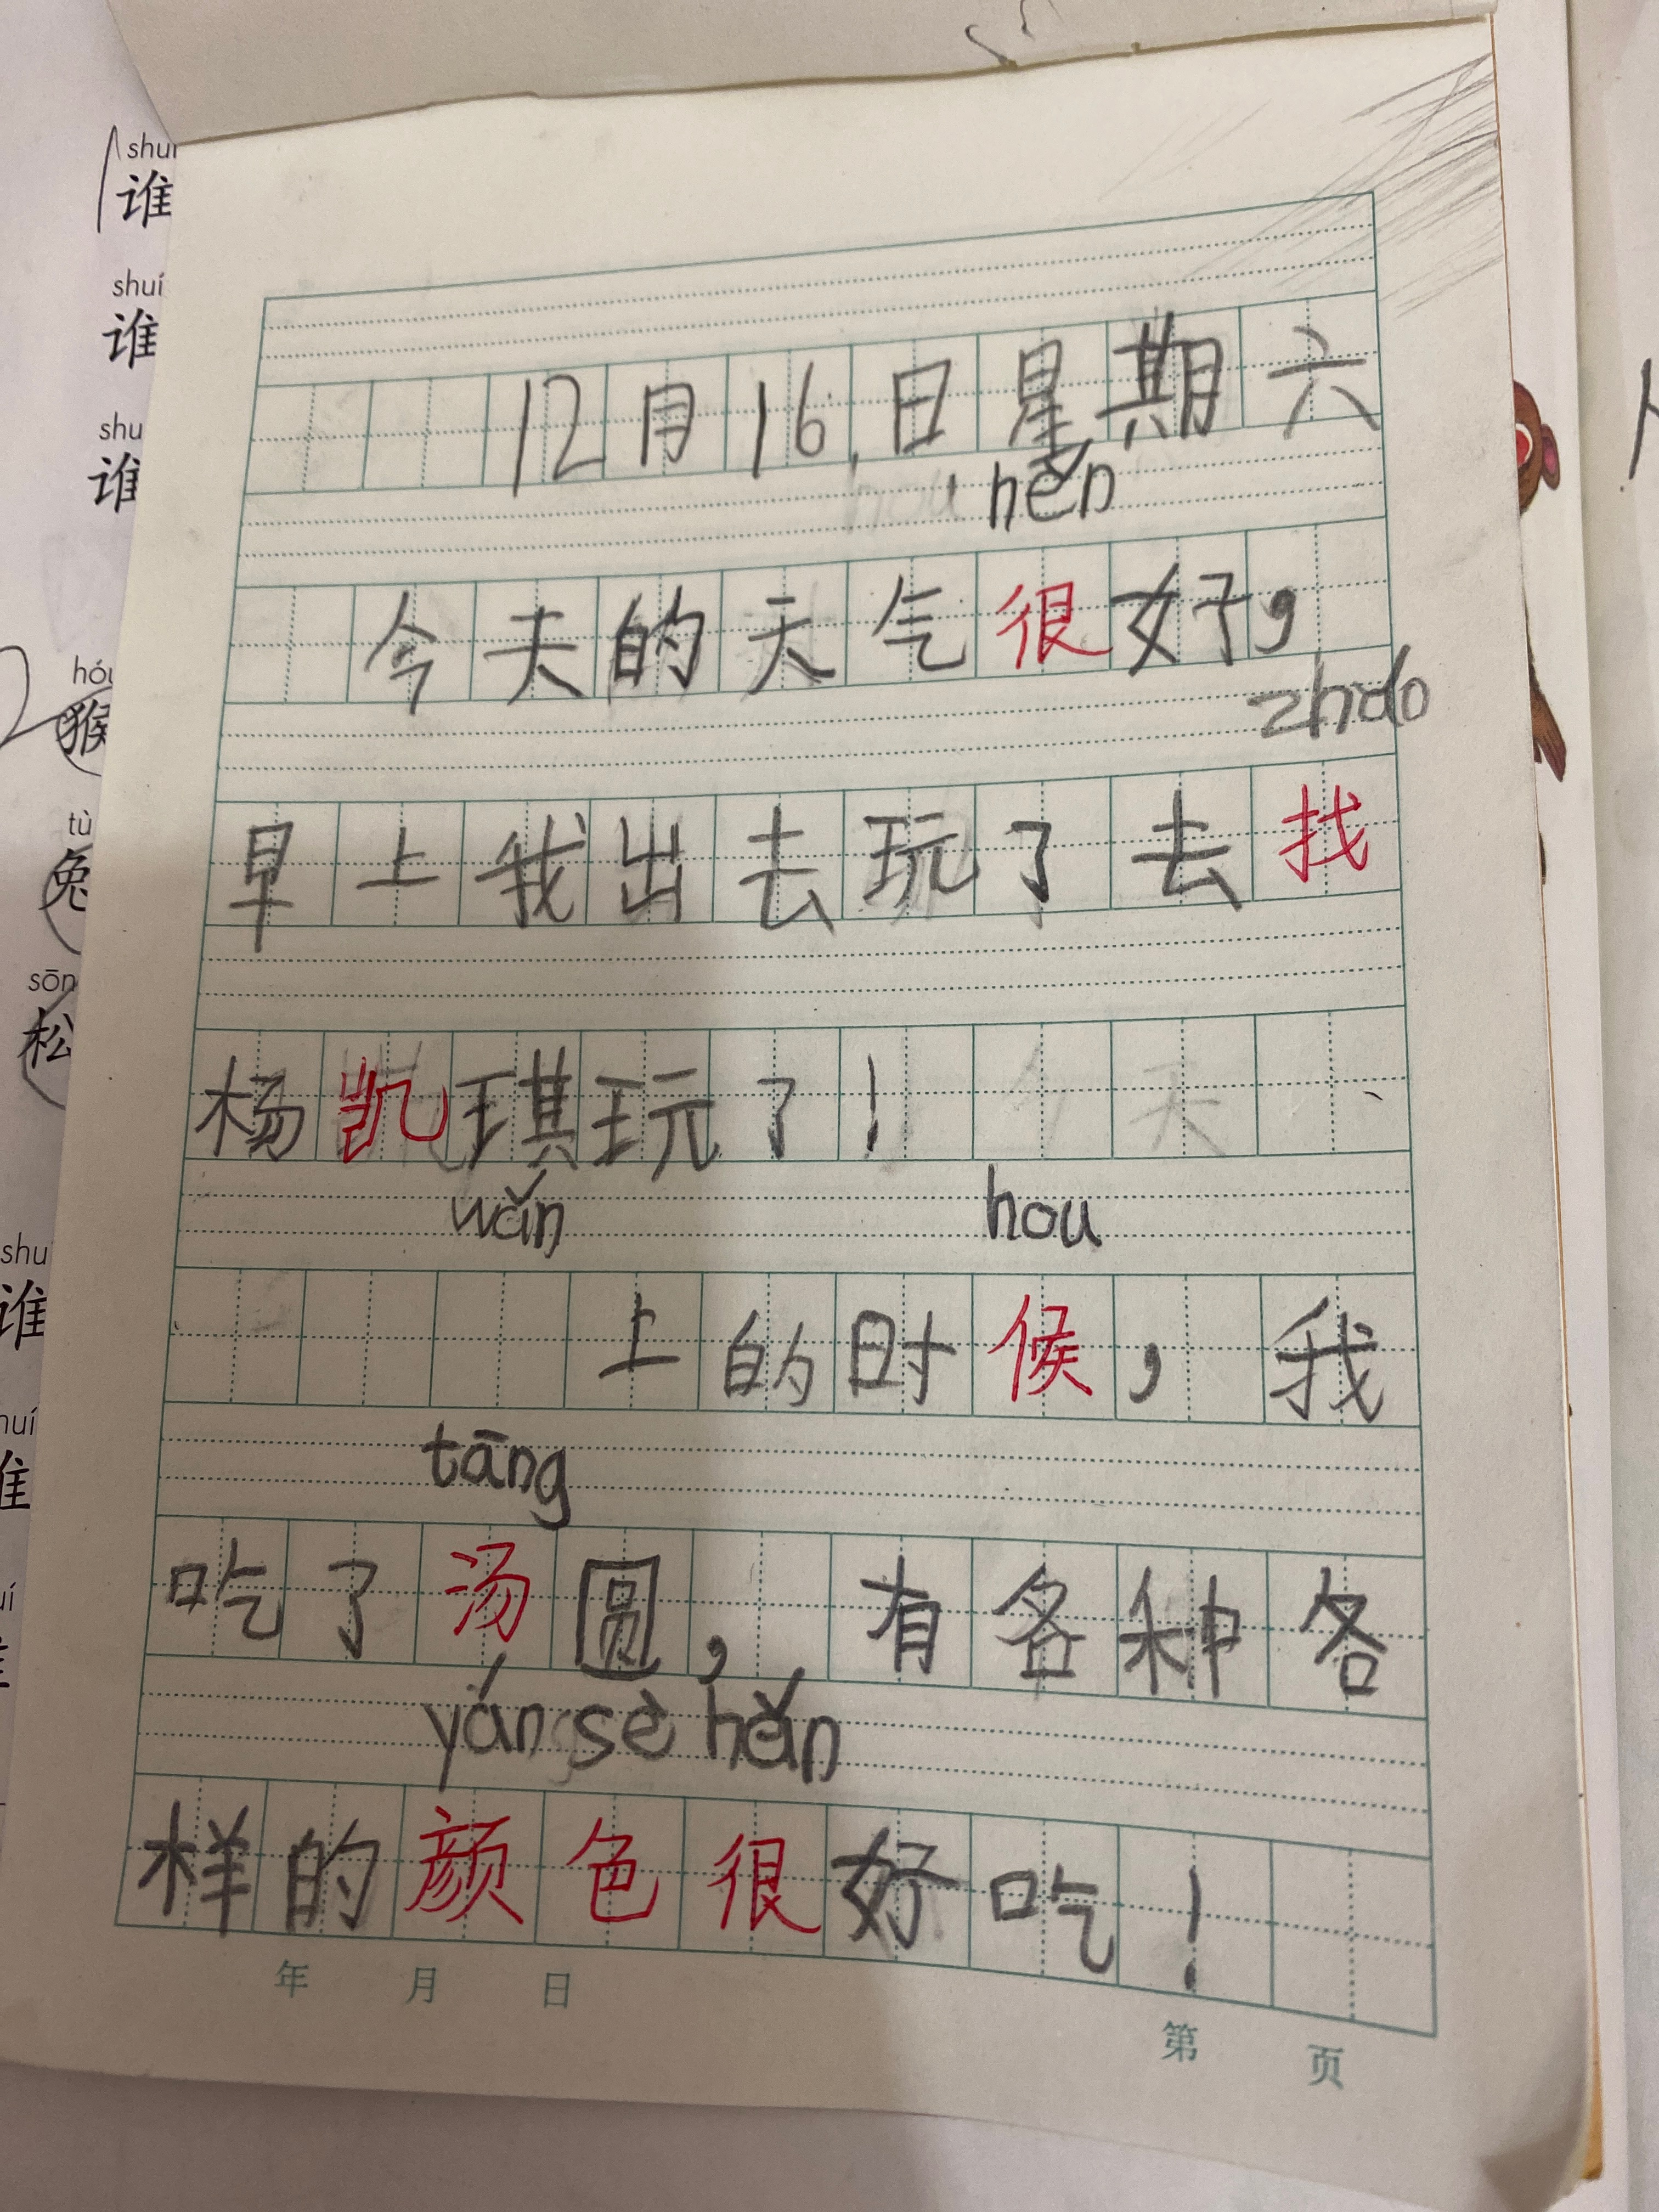 shuí
谁
shuí
谁
shu
谁
hóu
猴
tù
兔
sōn
松
shu
谁
huí
谁
12月16日星期六
hěn
今天的天气很好，
zhǎo
早上我出去玩了去找
杨凯琪玩了！今天
wǎn hou
上的时候，我
tāng
吃了汤圆，有各种各
yánsè hěn
样的颜色很好吃！
年 月 日
第 页